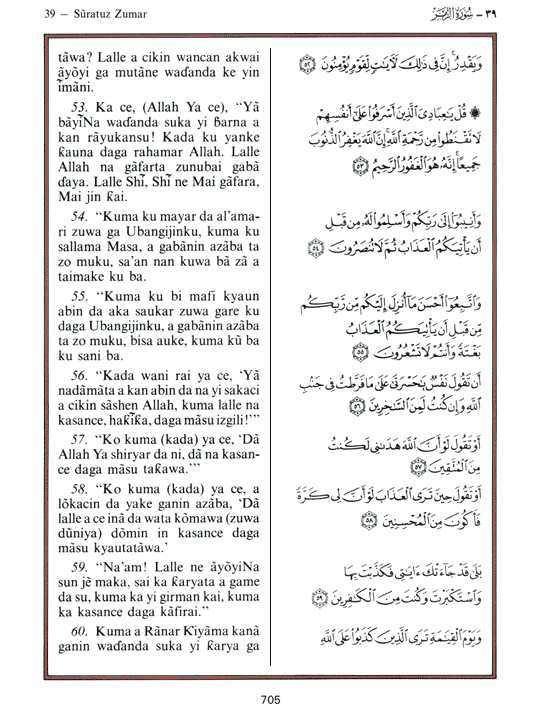 39 — Sūratuz Zumar
٣٩ — سُورَةُ الزُّمَرِ
tāwa? Lalle a cikin wancan akwai
āyōyi ga mutāne waɗanda ke yin
īmāni.
53. Ka ce, (Allah Ya ce), “Yā
bāyīNa waɗanda suka yi ɓarna a
kan rāyukansu! Kada ku yanke
ƙauna daga rahamar Allah. Lalle
Allah na gāfarta zunubai gabā
ɗaya. Lalle Shī, Shī ne Mai gāfara,
Mai jin ƙai.
54. “Kuma ku mayar da al’ama-
ri zuwa ga Ubangijinku, kuma ku
sallama Masa, a gabānin azāba ta
zo muku, sa’an nan kuwa bā zā a
taimake ku ba.
55. “Kuma ku bi mafi kyaun
abin da aka saukar zuwa gare ku
daga Ubangijinku, a gabānin azāba
ta zo muku, bisa auke, kuma kū ba
ku sani ba.
56. “Kada wani rai ya ce, ‘Yā
nadāmāta a kan abin da na yi sakaci
a cikin sāshen Allah, kuma lalle na
kasance, haƙīƙa, daga māsu izgili!’”
57. “Ko kuma (kada) ya ce, ‘Dā
Allah Ya shiryar da ni, dā na kasan-
ce daga māsu taƙawa.’”
58. “Ko kuma (kada) ya ce, a
lōkacin da yake ganin azāba, ‘Dā
lalle a ce inā da wata kōmawa (zuwa
dūniya) dōmin in kasance daga
māsu kyautatāwa.’
59. “Na’am! Lalle ne āyōyiNa
sun jē maka, sai ka ƙaryata a game
da su, kuma ka yi girman kai, kuma
ka kasance daga kāfirai.”
60. Kuma a Rānar Kiyāma kanā
ganin waɗanda suka yi ƙarya ga
وَيَقْدِرُ إِنَّ فِي ذَٰلِكَ لَآيَاتٍ لِّقَوْمٍ يُؤْمِنُونَ ٥٢
۞ قُلْ يَٰعِبَادِيَ الَّذِينَ أَسْرَفُوا عَلَىٰ أَنفُسِهِمْ
لَا تَقْنَطُوا مِن رَّحْمَةِ اللَّهِ إِنَّ اللَّهَ يَغْفِرُ الذُّنُوبَ
جَمِيعًا إِنَّهُ هُوَ الْغَفُورُ الرَّحِيمُ ٥٣
وَأَنِيبُوا إِلَىٰ رَبِّكُمْ وَأَسْلِمُوا لَهُ مِن قَبْلِ
أَن يَأْتِيَكُمُ الْعَذَابُ ثُمَّ لَا تُنصَرُونَ ٥٤
وَاتَّبِعُوا أَحْسَنَ مَا أُنزِلَ إِلَيْكُم مِّن رَّبِّكُم
مِّن قَبْلِ أَن يَأْتِيَكُمُ الْعَذَابُ
بَغْتَةً وَأَنتُمْ لَا تَشْعُرُونَ ٥٥
أَن تَقُولَ نَفْسٌ يَٰحَسْرَتَىٰ عَلَىٰ مَا فَرَّطتُ فِي جَنبِ
اللَّهِ وَإِن كُنتُ لَمِنَ السَّٰخِرِينَ ٥٦
أَوْ تَقُولَ لَوْ أَنَّ اللَّهَ هَدَىٰنِي لَكُنتُ
مِنَ الْمُتَّقِينَ ٥٧
أَوْ تَقُولَ حِينَ تَرَى الْعَذَابَ لَوْ أَنَّ لِي كَرَّةً
فَأَكُونَ مِنَ الْمُحْسِنِينَ ٥٨
بَلَىٰ قَدْ جَاءَتْكَ ءَايَٰتِي فَكَذَّبْتَ بِهَا
وَاسْتَكْبَرْتَ وَكُنتَ مِنَ الْكَٰفِرِينَ ٥٩
وَيَوْمَ الْقِيَٰمَةِ تَرَى الَّذِينَ كَذَبُوا عَلَى اللَّهِ
705